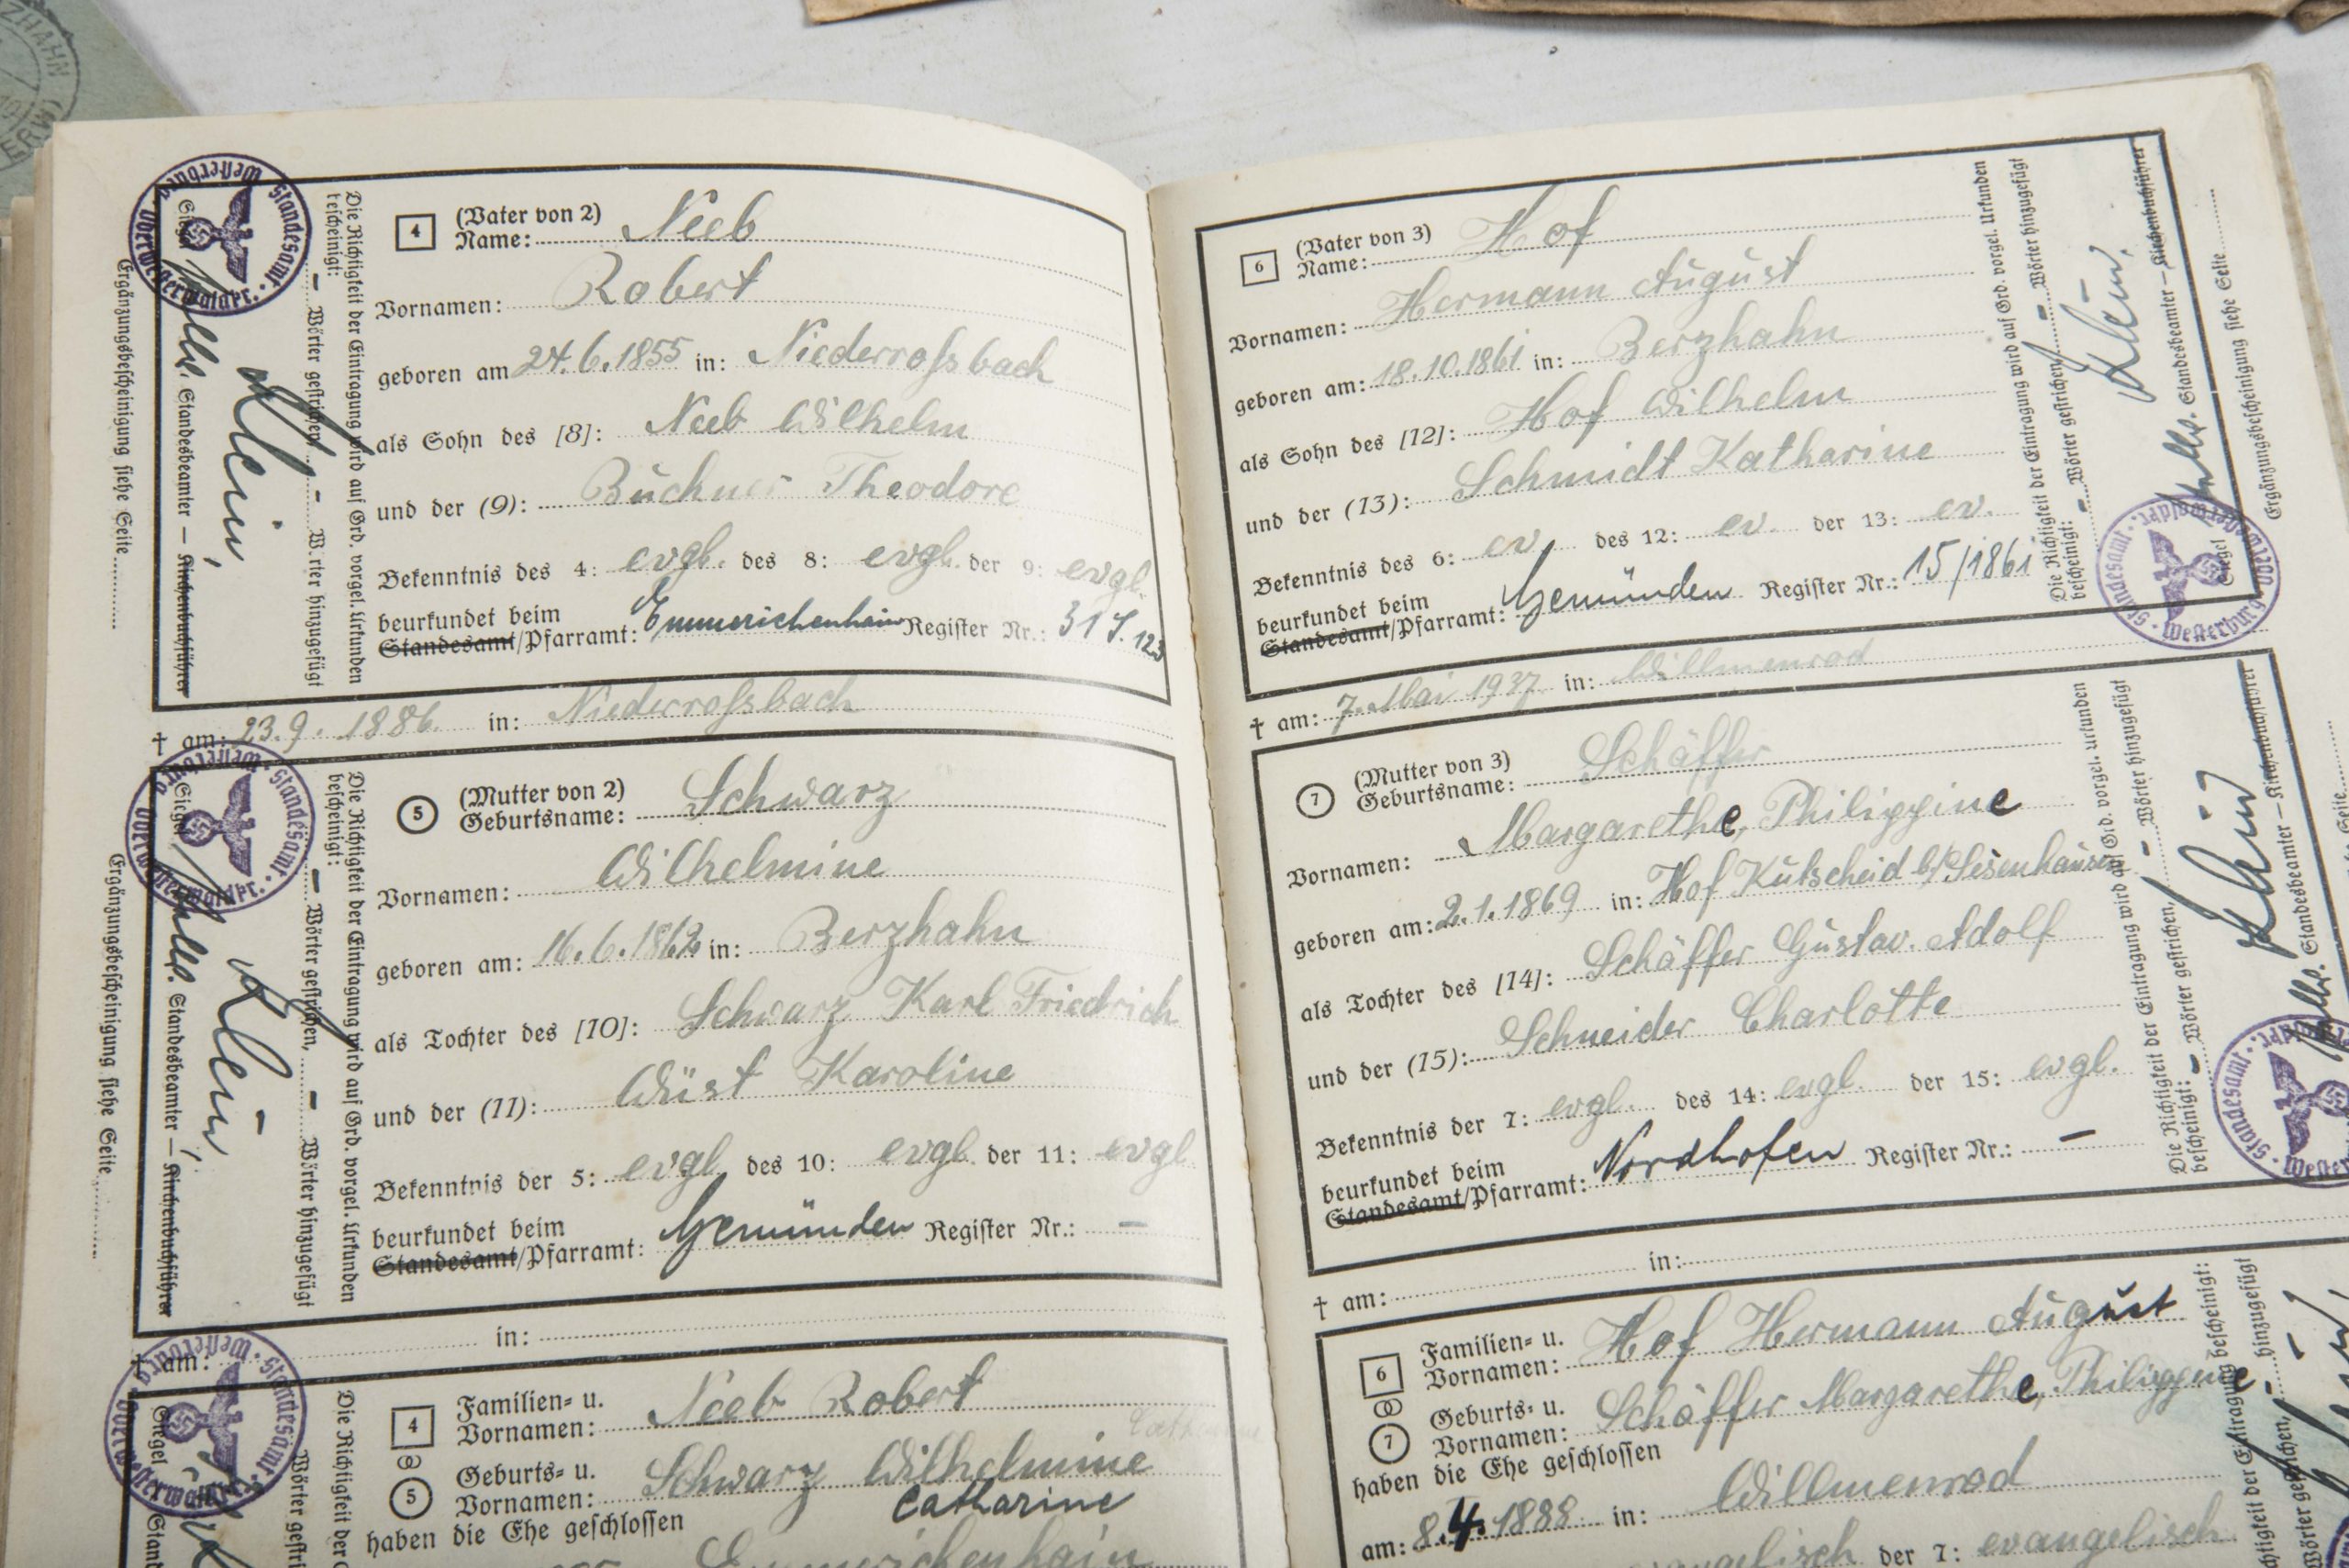 4 (Vater von 2)
Name: Neeb
Vornamen: Robert
geboren am 24.6.1855 in: Niederroßbach
als Sohn des [8]: Neeb Wilhelm
und der (9): Büchner Theodore
Bekenntnis des 4: evgl. des 8: evgl. der 9: evgl.
beurkundet beim
Standesamt/Pfarramt: Emmerichenhain Register Nr.: 31 S. 123
Die Richtigkeit der Eintragung wird auf Grd. vorgel. Urkunden
bescheinigt: – Wörter gestrichen, – Wörter hinzugefügt
Klein
Siegel Standesbeamter – Kirchenbuchführer
Ergänzungsbescheinigung siehe Seite
Standesamt · Westerburg · Oberwesterwaldkr.
† am: 23.9.1886. in: Niederroßbach
5 (Mutter von 2)
Geburtsname: Schwarz
Vornamen: Wilhelmine
geboren am: 16.6.1862 in: Berzhahn
als Tochter des [10]: Schwarz Karl Friedrich
und der (11): Wüst Karoline
Bekenntnis der 5: evgl. des 10: evgl. der 11: evgl
beurkundet beim
Standesamt/Pfarramt: Gemünden Register Nr.: –
Die Richtigkeit der Eintragung wird auf Grd. vorgel. Urkunden
bescheinigt: – Wörter gestrichen, – Wörter hinzugefügt
Klein
Siegel Standesbeamter – Kirchenbuchführer
Ergänzungsbescheinigung siehe Seite
Standesamt · Westerburg · Oberwesterwaldkr.
† am: in:
4 Familien- u.
Vornamen: Neeb Robert
5 Geburts- u.
Vornamen: Schwarz Wilhelmine
Catharine
haben die Ehe geschlossen
Emmerichenhain
Die Richtigkeit der
Siegel
Standesamt · Westerburg · Oberwesterwaldkr.
6 (Vater von 3)
Name: Hof
Vornamen: Hermann August
geboren am: 18.10.1861 in: Berzhahn
als Sohn des [12]: Hof Wilhelm
und der (13): Schmidt Katharine
Bekenntnis des 6: ev. des 12: ev. der 13: ev.
beurkundet beim
Standesamt/Pfarramt: Gemünden Register Nr.: 15/1861
Die Richtigkeit der Eintragung wird auf Grd. vorgel. Urkunden
bescheinigt: – Wörter gestrichen, – Wörter hinzugefügt
Klein
Siegel Standesbeamter – Kirchenbuchführer
Ergänzungsbescheinigung siehe Seite
Standesamt · Westerburg · Oberwesterwaldkr.
† am: 7. Mai 1937 in: Willmenrod
7 (Mutter von 3)
Geburtsname: Schäffer
Vornamen: Margarethe, Philippine
geboren am: 2.1.1869 in: Hof Kutscheid b/Sesenhausen
als Tochter des [14]: Schäffer Gustav. Adolf
und der (15): Schneider Charlotte
Bekenntnis der 7: evgl. des 14: evgl. der 15: evgl.
beurkundet beim
Standesamt/Pfarramt: Nordhofen Register Nr.: –
Die Richtigkeit der Eintragung wird auf Grd. vorgel. Urkunden
bescheinigt: – Wörter gestrichen, – Wörter hinzugefügt
Klein
Standesbeamter – Kirchenbuchführer
† am: in:
6 Familien- u.
Vornamen: Hof Hermann August
7 Geburts- u.
Vornamen: Schäffer Margarethe, Philippine
haben die Ehe geschlossen
am: 8.4.1888 in: Willmenrod
der 7: evangelisch